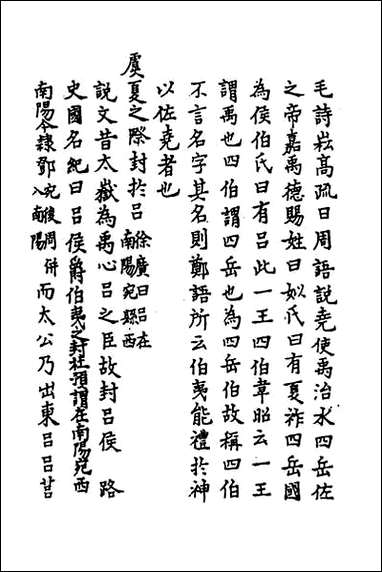 毛詩崧高疏曰周語說堯使禹治水四岳佐
之帝嘉禹德賜姓曰姒氏曰有夏祚四岳國
為侯伯氏曰有呂此一王四伯韋昭云一王
謂禹也四伯謂四岳也為四岳伯故稱四伯
不言名字其名則鄭語所云伯夷能禮於神
以佐堯者也
虞夏之際封於呂徐廣曰呂在南陽宛縣西
說文昔太嶽為禹心呂之臣故封呂侯 路
史國名紀曰呂侯爵伯夷之封杜預謂在南陽宛西
南陽今隸鄧宛後周併入南陽而太公乃出東呂呂莒